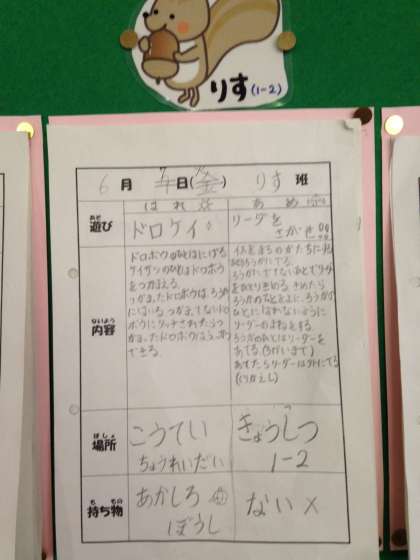 りす(1-2)
6月 7日(金) りす 班
はれ あめ
遊び あそ ドロケイ リーダを
さがせ!!
内容 ないよう
ドロボウのひとはにげる
ケイサツのひとはドロボウ
をつかまえる。
つかまったドロボウは、ろうや
にはいる
ボウにタッチされたらつ
かまったドロボウは
できる。
イスをまるのかたちに
ろうかにでてないひとでリーダ
をひとりきめる きめたら
ろうかのひとをよぶ、ろうかの
ひとにばれないように
リーダーのまねをする
ろうかのひとはリーダーを
あてる(3かいまで)
あてたらリーダーは外にでる
(くりかえし)
場所 ばしょ こうてい きょうしつ
ちょうれいだい 1-2
持ち物 も もの あかしろ ない×
ぼうし